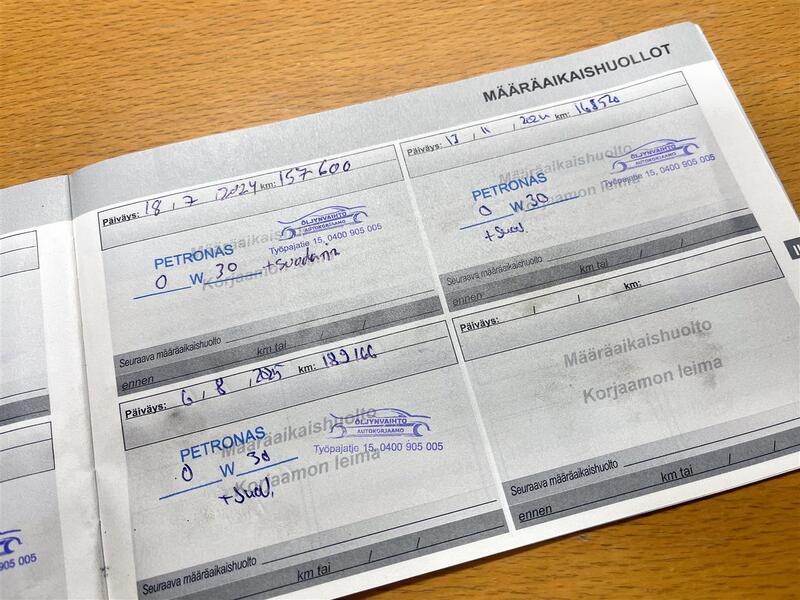 MÄÄRÄAIKAISHUOLLOT
Päiväys: 18 , 7 , 2024 km: 157600
Määräaikaishuolto
Korjaamon leima
PETRONAS
0 W 30 +Suodatin
ÖLJYNVAIHTO
AUTOKORJAAMO
Työpajatie 15, 0400 905 005
Seuraava määräaikaishuolto
ennen / / km tai
Päiväys: 13 / 11 , 2024 km: 168520
Määräaikaishuolto
Korjaamon leima
PETRONAS
0 W 30
+Suod.
ÖLJYNVAIHTO
AUTOKORJAAMO
Työpajatie 15, 0400 905 005
Seuraava määräaikaishuolto
ennen / / km tai
Päiväys: 6 , 8 , 2025 km: 189166
Määräaikaishuolto
Korjaamon leima
PETRONAS
0 W 30
+Suod.
ÖLJYNVAIHTO
AUTOKORJAAMO
Työpajatie 15, 0400 905 005
Seuraava määräaikaishuolto
km tai / /
Päiväys: / / km:
Määräaikaishuolto
Korjaamon leima
Seuraava määräaikaishuolto
ennen km tai / /
005